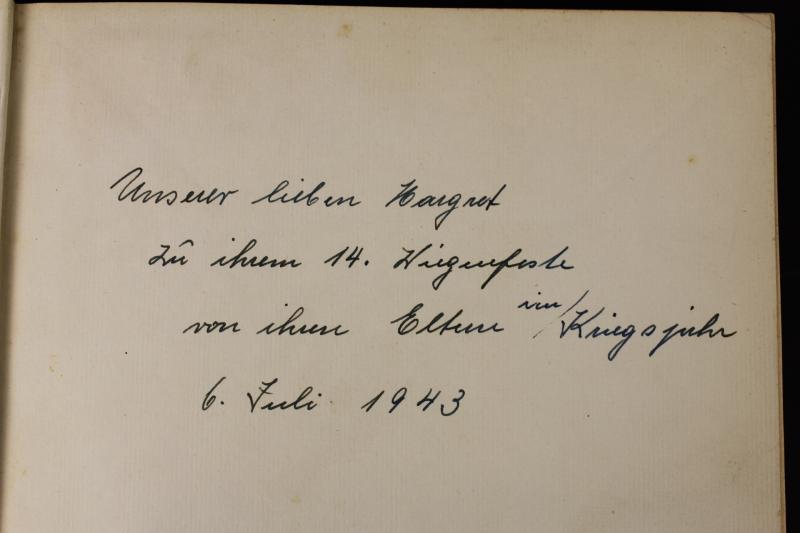 Unserer lieben Margret
zu ihrem 14. Wiegenfeste
von ihren Eltern im Kriegsjahr
6. Juli 1943